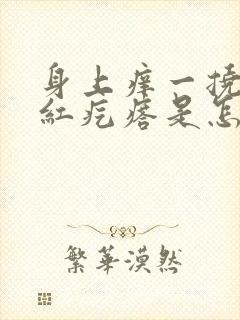 身上癢一撓
紅疙瘩是怎
繁華漠然